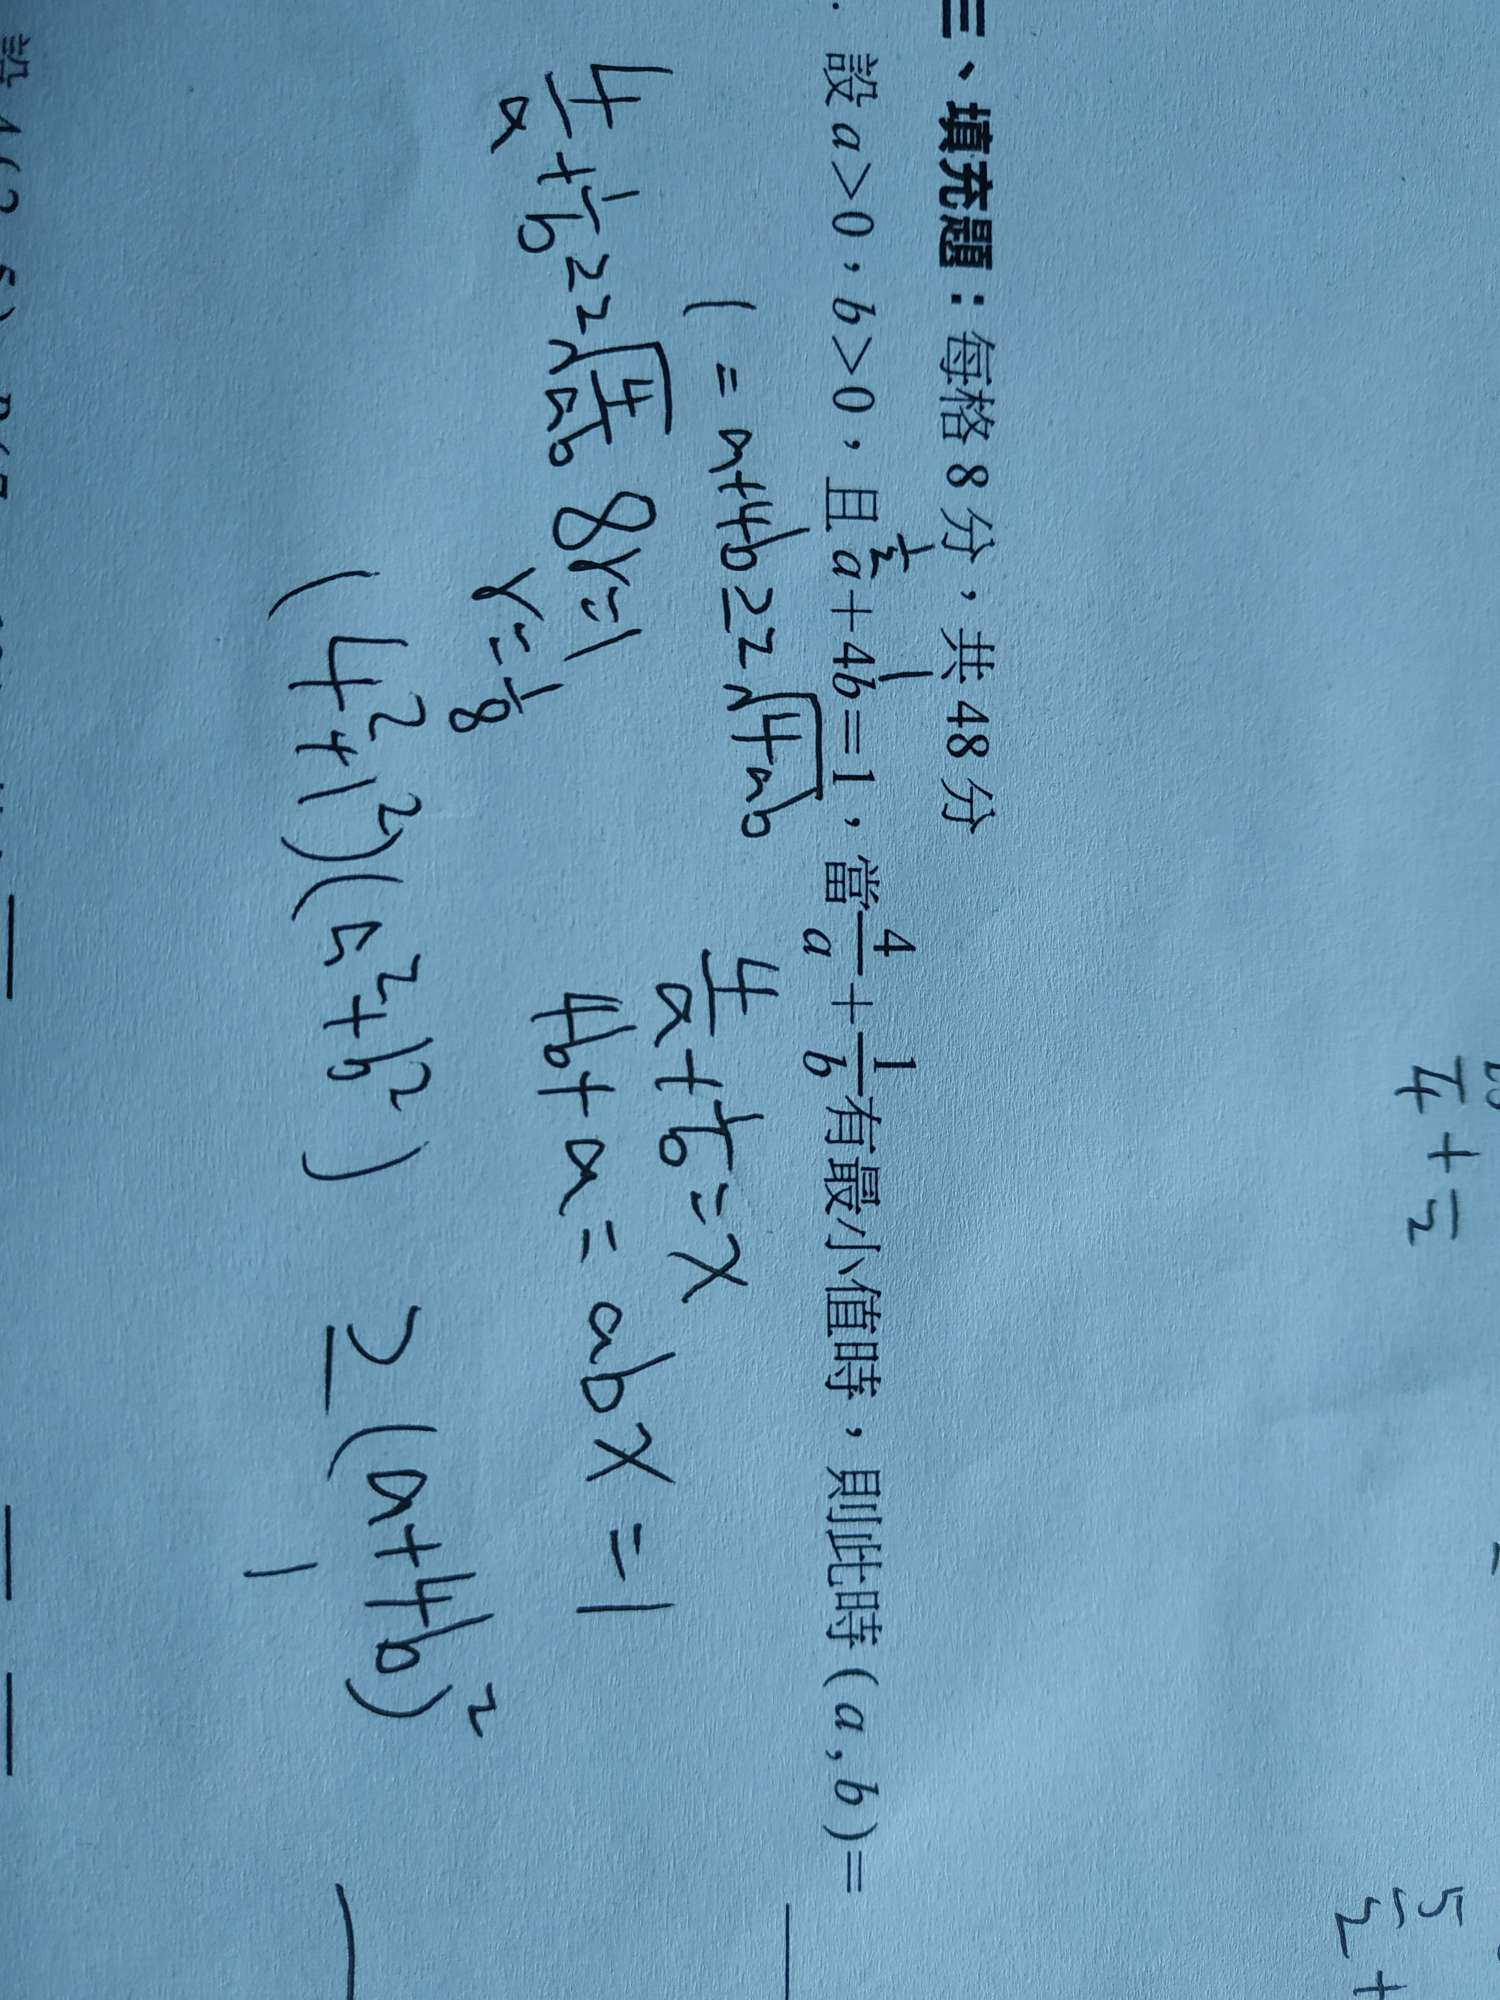 三、填充題：每格 8 分，共 48 分
. 設 a>0，b>0，且 a+4b=1，當 4/a + 1/b 有最小值時，則此時 (a,b)=
1/2 1
1 = a+4b ≥ 2√4ab
4/a + 1/b ≥ 2√4/ab
8r=1
r=1/8
4/a + 1/b = x
4b+a = abx = 1
(4²+1²)(a²+b²) ≥ (a+4b)²
1